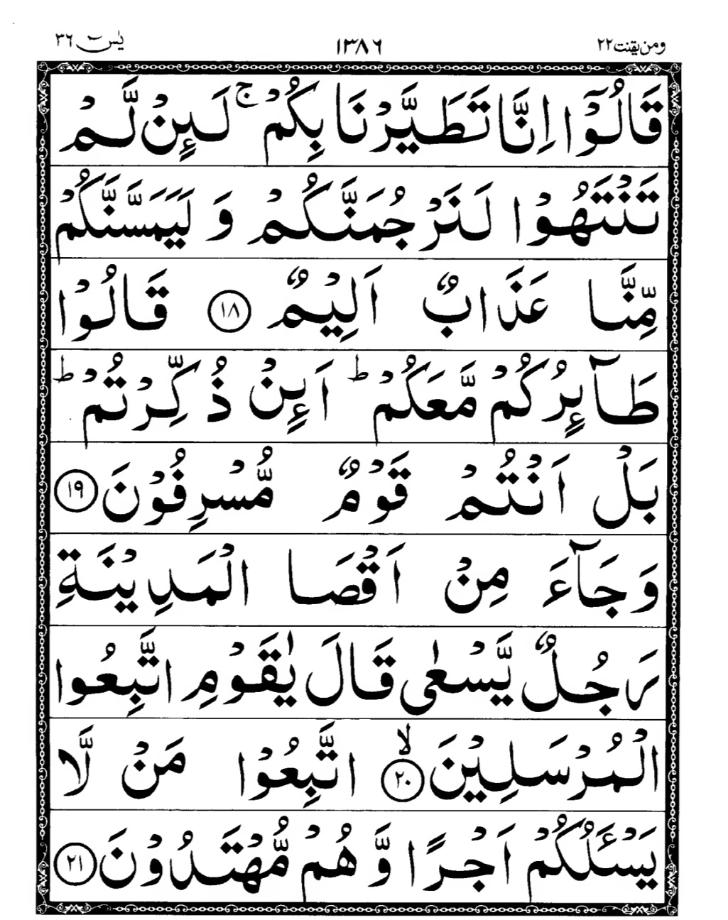 ومن یقنت ۲۲ ۱۳۸۶ یٰس ۳۶
قَالُوْۤا اِنَّا تَطَیَّرْنَا بِكُمْ ۚ لَىِٕنْ لَّمْ
تَنْتَهُوْا لَنَرْجُمَنَّكُمْ وَ لَیَمَسَّنَّكُمْ
مِّنَّا عَذَابٌ اَلِیْمٌ ۝۱۸ قَالُوْا
طَآىِٕرُكُمْ مَّعَكُمْ ؕ اَىِٕنْ ذُكِّرْتُمْ ؕ
بَلْ اَنْتُمْ قَوْمٌ مُّسْرِفُوْنَ ۝۱۹
وَجَآءَ مِنْ اَقْصَا الْمَدِیْنَةِ
رَجُلٌ یَّسْعٰی قَالَ یٰقَوْمِ اتَّبِعُوا
الْمُرْسَلِیْنَ ۝۲۰ ۙ اتَّبِعُوْا مَنْ لَّا
یَسْـَٔلُكُمْ اَجْرًا وَّ هُمْ مُّهْتَدُوْنَ ۝۲۱